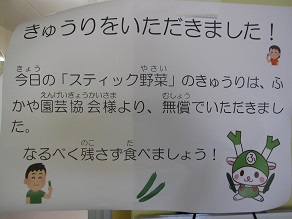 きゅうりをいただきました！
今日の「スティック野菜」のきゅうりは、ふ
かや園芸協会様より、無償でいただきまし
た。
なるべく残さず食べましょう！